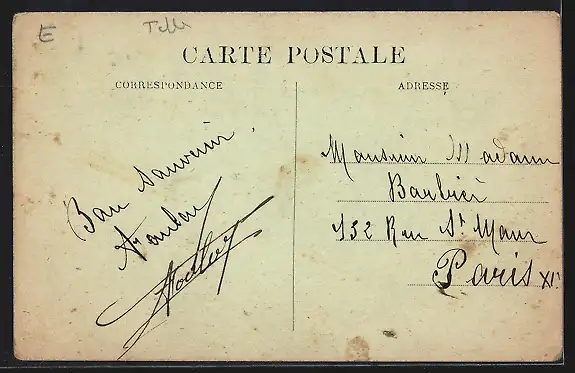 E
CARTE POSTALE
CORRESPONDANCE
ADRESSE
Bon Souvenir
Monsieur Madame
Barbier
132 Rue St Maur
Paris XI